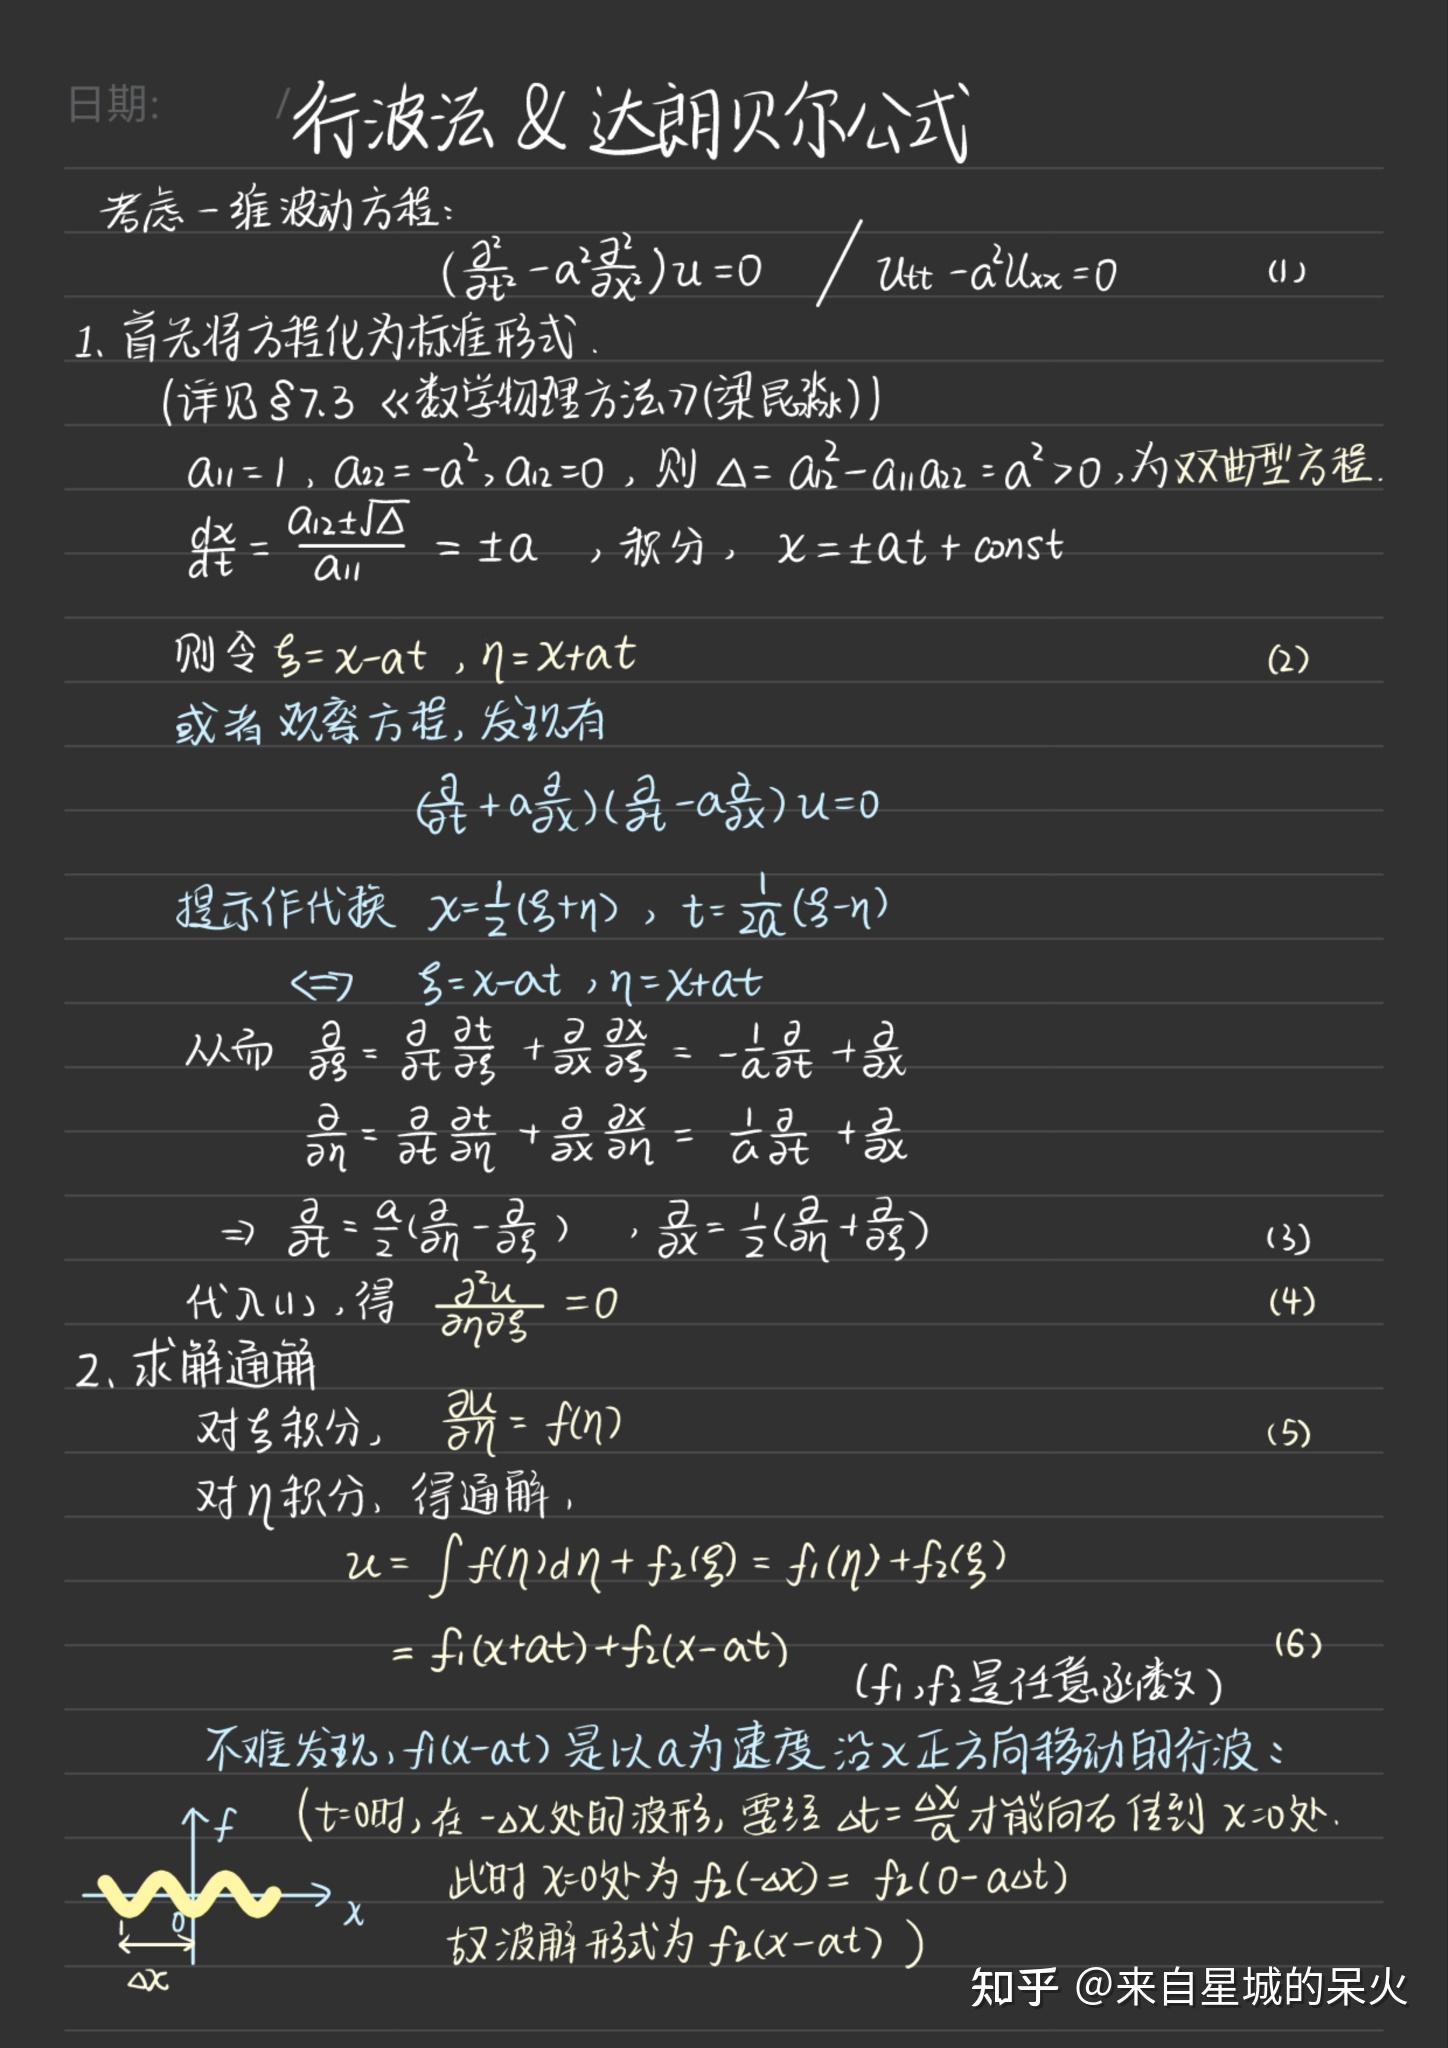 日期: /
行波法 & 达朗贝尔公式
考虑一维波动方程:
(∂²/∂t² - a²∂²/∂x²)u=0 / utt - a²uxx=0 (1)
1、首先将方程化为标准形式.
(详见§7.3《数学物理方法》(梁昆淼))
a11=1, a22=-a², a12=0, 则 Δ= a12²-a11a22=a²>0, 为双曲型方程.
dx/dt = (a12±√Δ)/a11 = ±a , 积分, x=±at+const
则令 ξ=x-at , η=x+at (2)
或者观察方程, 发现有
(∂/∂t + a∂/∂x)(∂/∂t - a∂/∂x)u=0
提示作代换 x=1/2(ξ+η), t=1/2a(ξ-η)
<=> ξ=x-at , η=x+at
从而 ∂/∂ξ = ∂/∂t ∂t/∂ξ + ∂/∂x ∂x/∂ξ = -1/a ∂/∂t + ∂/∂x
∂/∂η = ∂/∂t ∂t/∂η + ∂/∂x ∂x/∂η = 1/a ∂/∂t + ∂/∂x
=> ∂/∂t = a/2(∂/∂η - ∂/∂ξ) , ∂/∂x = 1/2(∂/∂η + ∂/∂ξ) (3)
代入(1), 得 ∂²u/∂η∂ξ =0 (4)
2、求解通解
对ξ积分, ∂u/∂η = f(η) (5)
对η积分、得通解,
u= ∫f(η)dη + f2(ξ) = f1(η)+f2(ξ)
= f1(x+at)+f2(x-at) (6)
(f1,f2是任意函数)
不难发现, f1(x-at)是以a为速度沿x正方向移动的行波:
(t=0时, 在-Δx处的波形, 要经 Δt=Δx/a 才能向右传到 x=0处.
此时 x=0处为 f2(-Δx)= f2(0-aΔt)
故波解形式为 f2(x-at) )
f
x
0
Δx
知乎 @来自星城的呆火